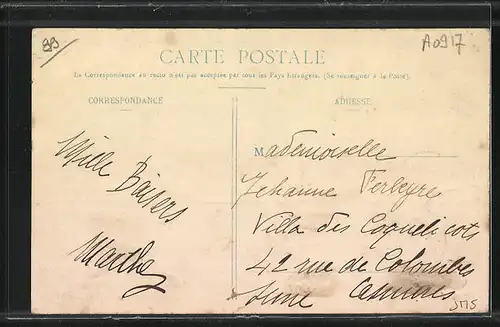 89
A0917
CARTE POSTALE
La Correspondance au recto n'est pas acceptée par tous les Pays Étrangers. (Se renseigner à la Poste).
CORRESPONDANCE
ADRESSE
Mille
Baisers
Marthe
Mademoiselle
Jehanne Ferbeyre
Villa des Coquelicots
42 rue de Colombes
Asnières